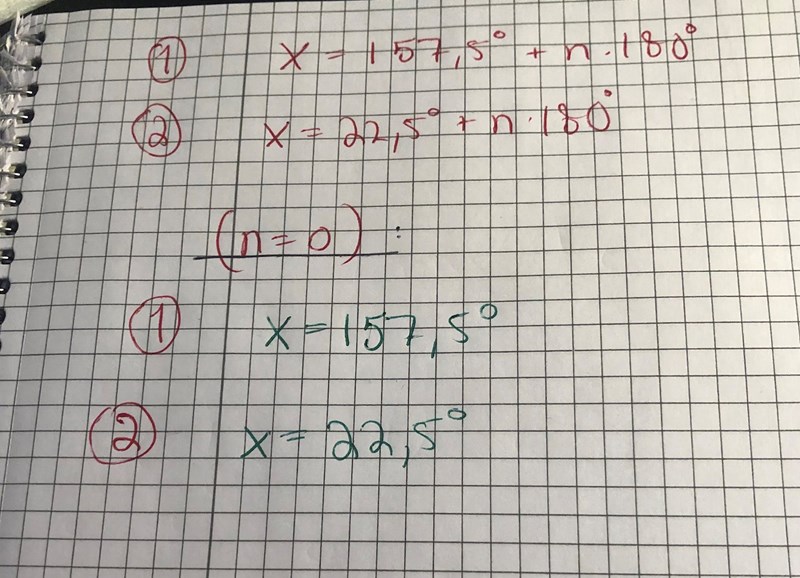 ① x = 157,5° + n·180°
② x = 22,5° + n·180°
(n = 0) :
① x = 157,5°
② x = 22,5°